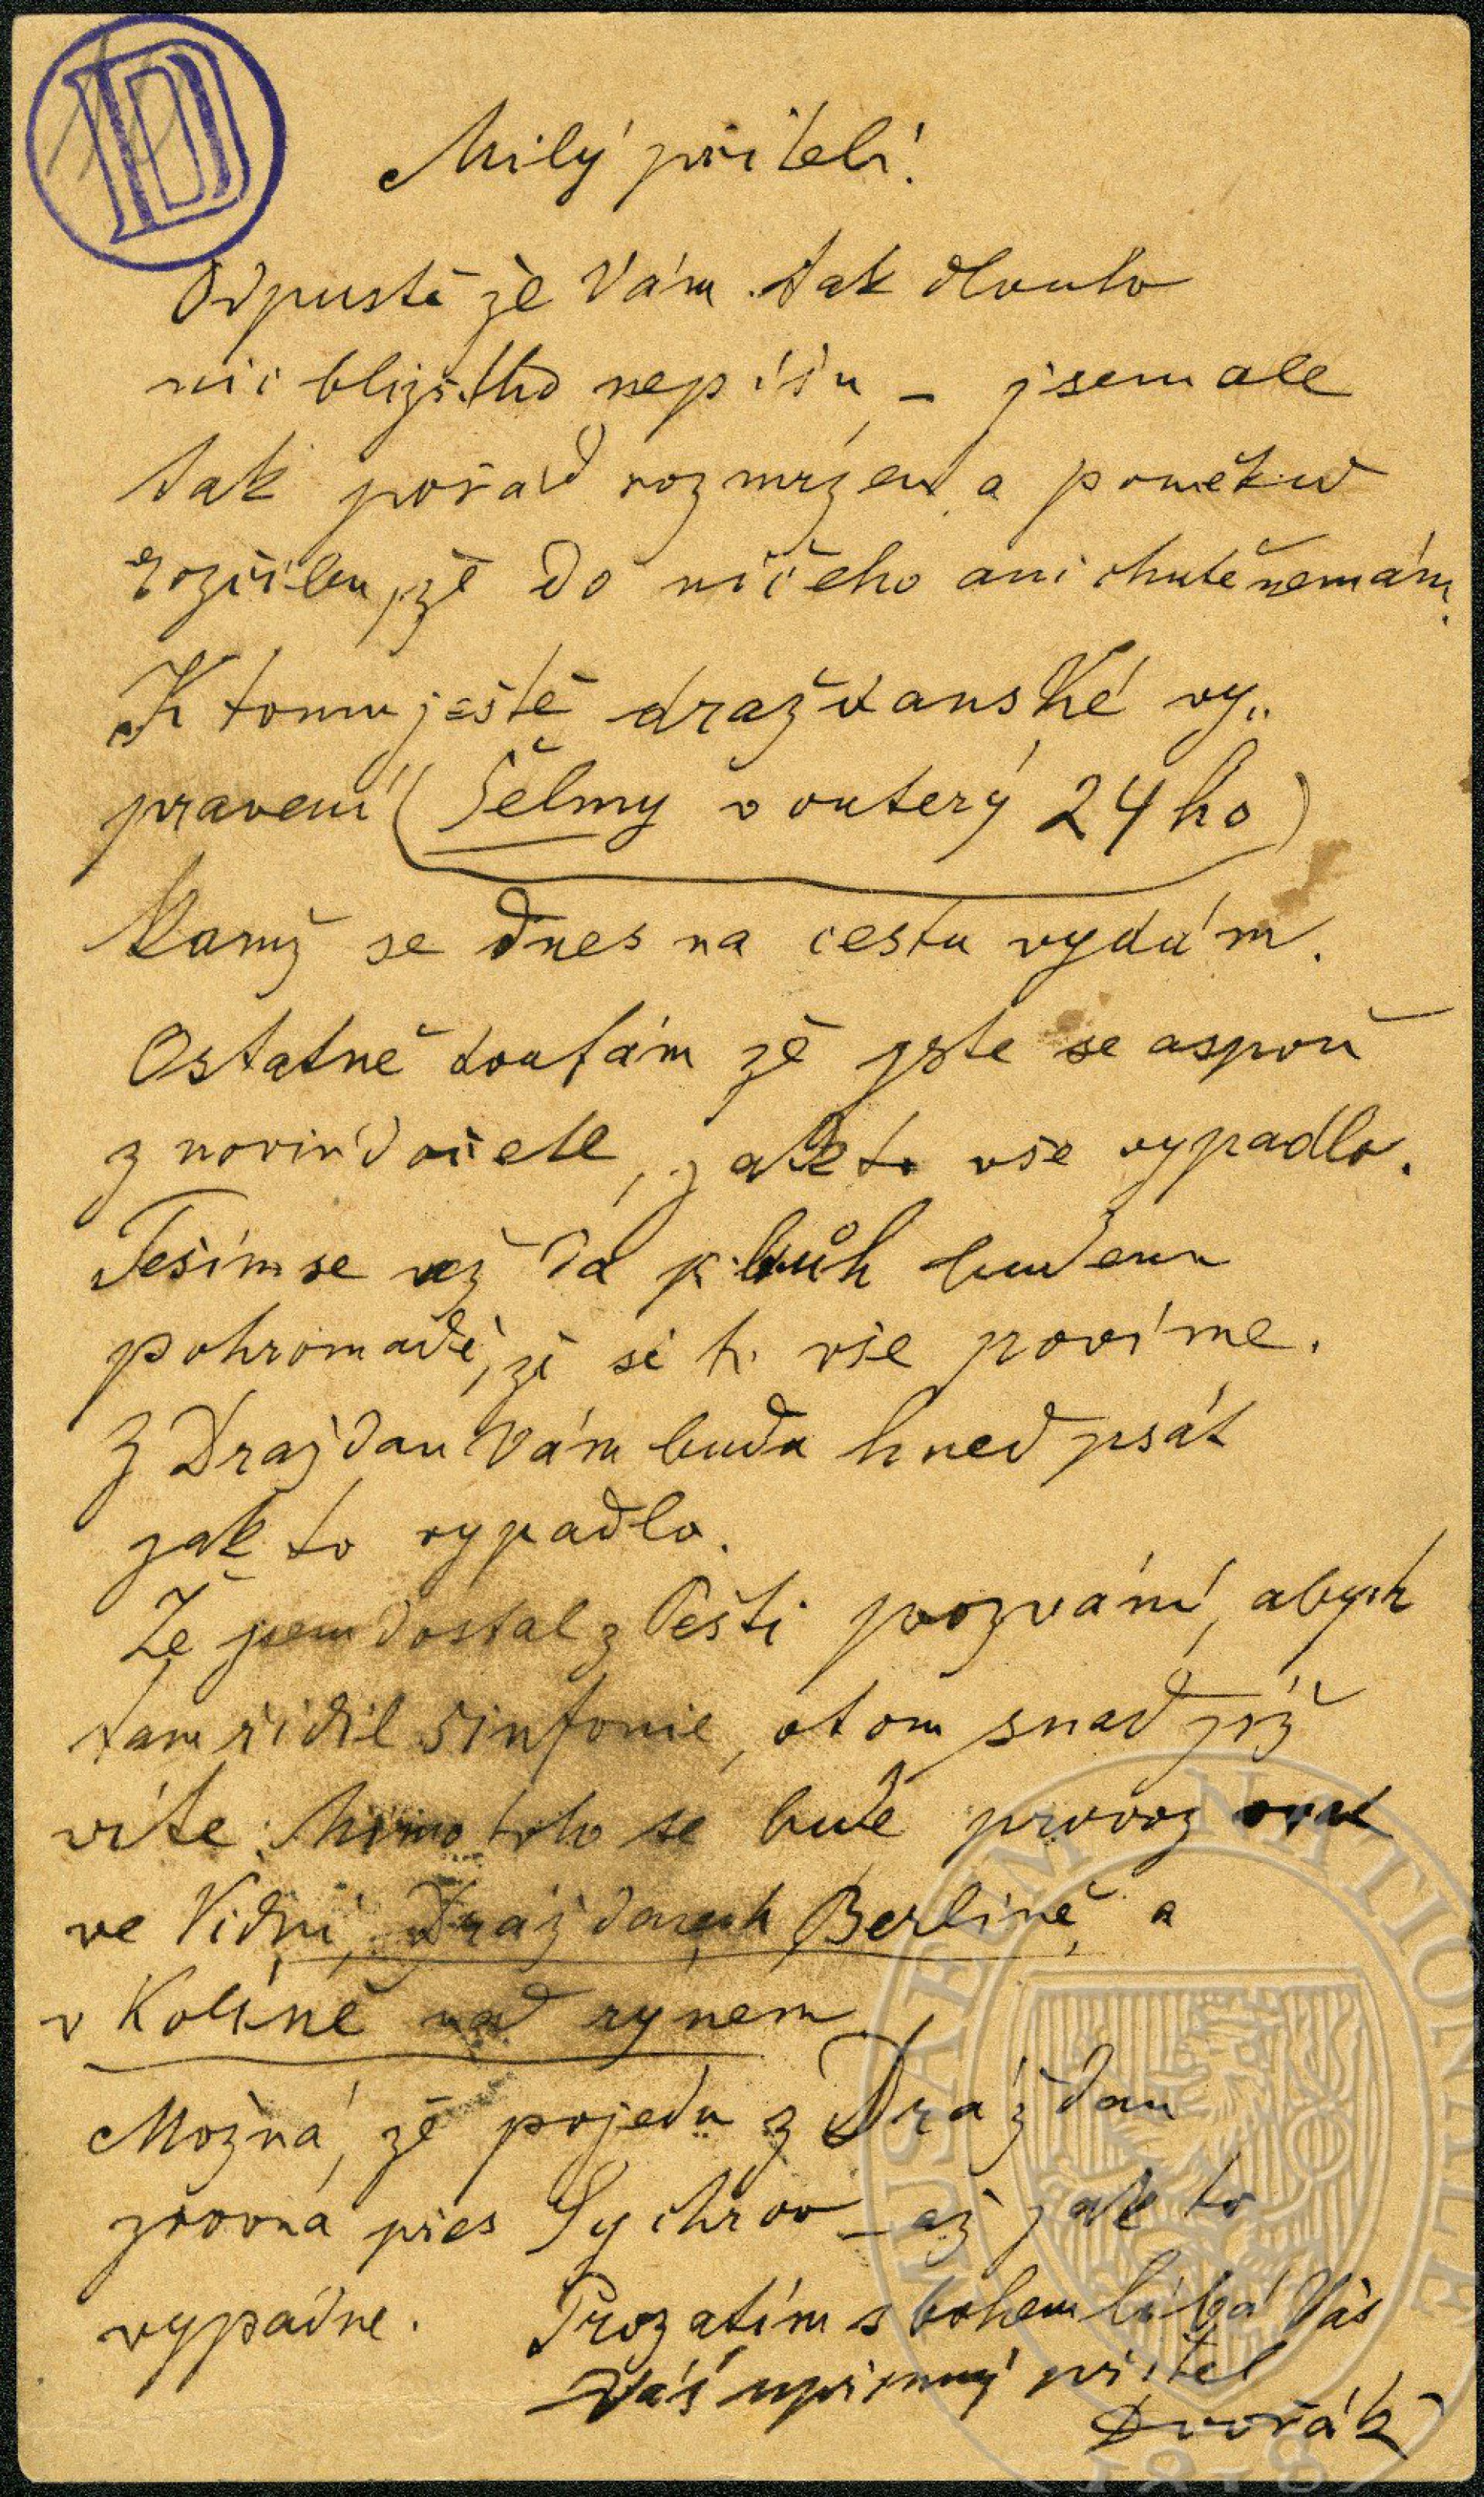 D
Milý příteli!
Odpusťe že Vám tak dlouho
nic bližšího nepíšu – jsem ale
tak pořád rozmrzen a poněkud
rozčilen, že do ničeho ani chutě nemám.
K tomu ještě draždanské vy„
pravení (Šelmy v outerý 24ho)
kamž se dnes na cestu vydám.
Ostatně doufám že jste se aspoň
z novin dočetl, jak to vše vypadlo.
Těším se až dá p. bůh budem
pohromadě, že si to vše povíme.
Z Draždan Vám budu hned psát
jak to vypadlo.
Že jsem dostal z Pešti pozvání, abych
tam řídil sinfonie, o tom snad již
víte. Mimo toho se bude provozovat
ve Vídni, Dráždanech, Berlině, a
v Kolíně nad rýnem
Možná, že pojedu z Dráždan
zrovna přes Sychrov – až jak to
vypadne. Prozatím s bohem líbá Vás
Váš upřímný přítel
Dvořák
MUSAEUM NATIONALE
1818